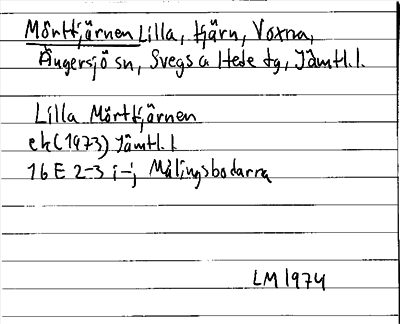 Mörttjärnen Lilla, tjärn, Voxna,
Ängersjö sn, Svegs o Hede tg, Jämtl.l.
Lilla Mörttjärnen
ek (1973) Jämtl.l
16 E 2-3 i-j Målingsbodarna
LM 1974